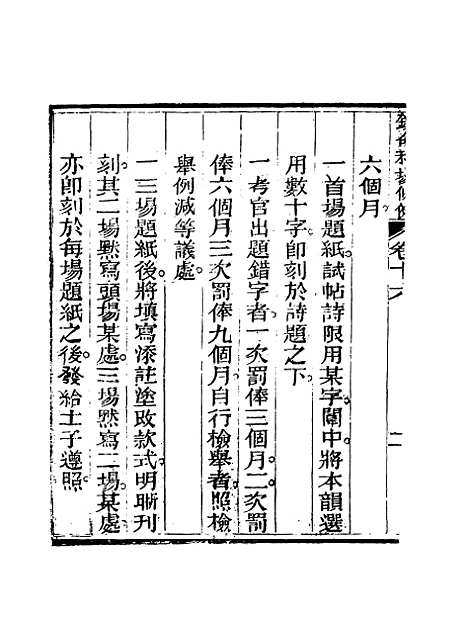 六個月。
一首場題紙試帖詩限用某字。闈中將本韻選
用數十字。卽刻於詩題之下。
一考官出題錯字者。一次罰俸三個月。二次罰
俸六個月。三次罰俸九個月。自行檢舉者。照檢
舉例減等議處。
一三場題紙後。將塡寫添註塗改款式。明晰刋
刻。其二場默寫頭場某處。三場默寫二場某處。
亦卽刻於每場題紙之後。發給士子遵照。
卷十六